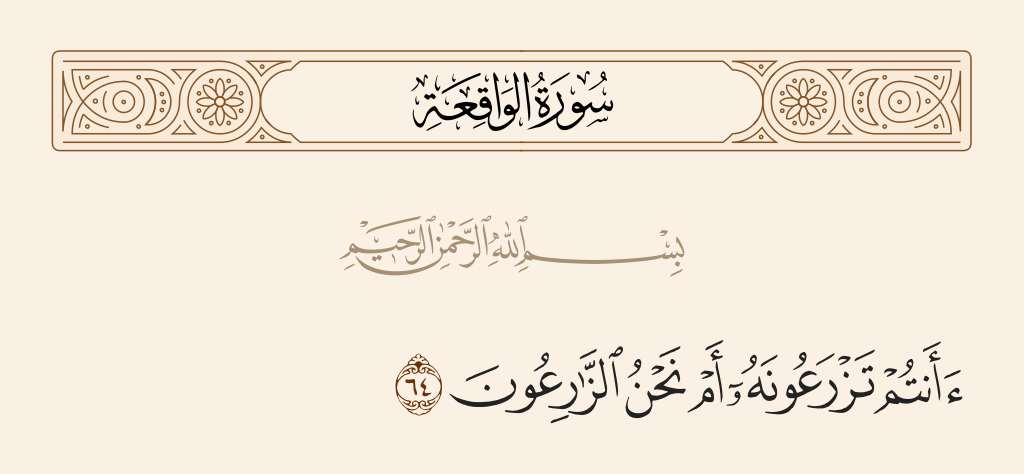 سُورَةُ الوَاقِعَةِ
بِسْمِ ٱللَّهِ ٱلرَّحْمَٰنِ ٱلرَّحِيمِ
ءَأَنتُمْ تَزْرَعُونَهُۥٓ أَمْ نَحْنُ ٱلزَّٰرِعُونَ ٦٤